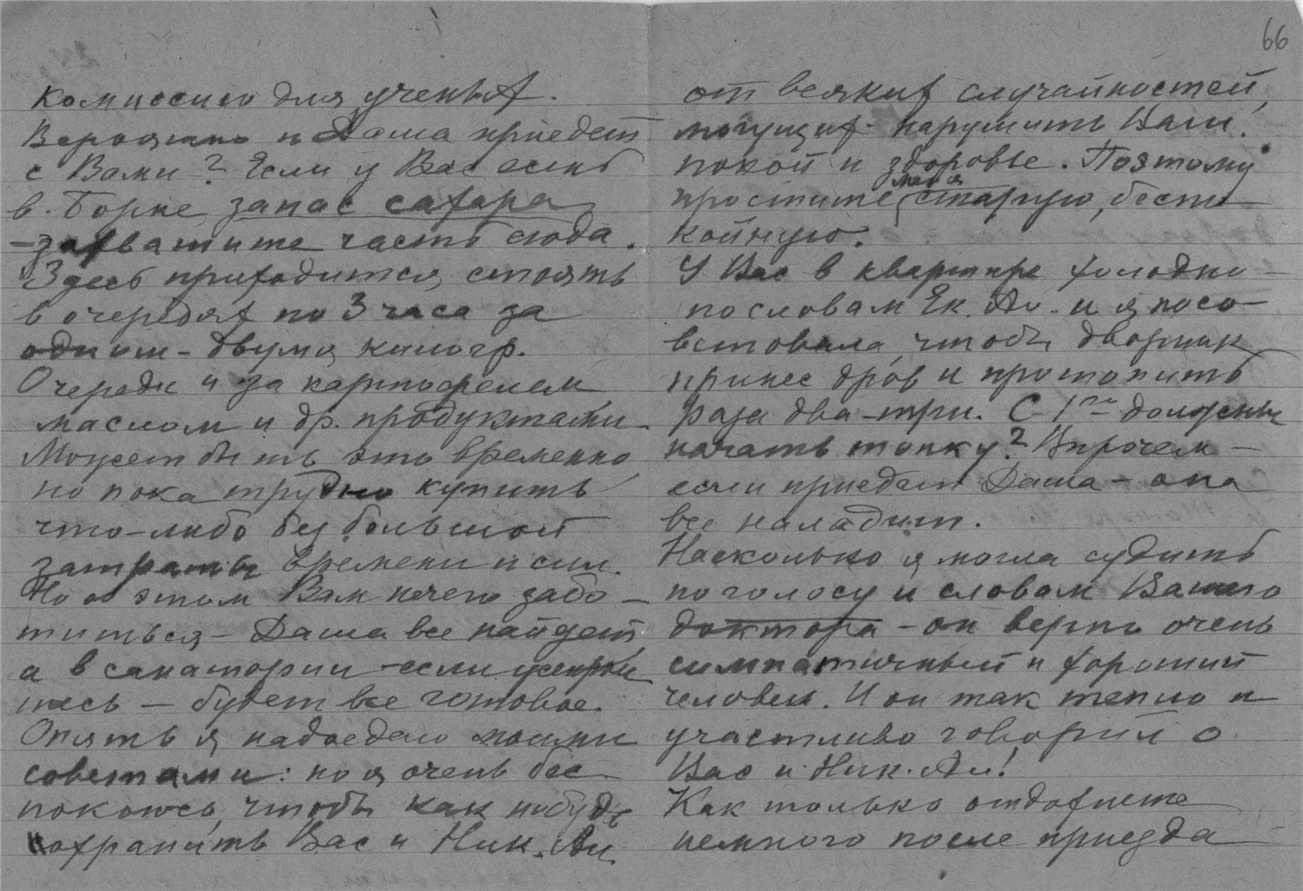 66
комиссию для ученых.
Вероятно и Даша приедет
с Вами? Если у Вас есть
в Борке запас сахара
– захватите часть сюда.
Здесь приходится стоять
в очередях по 3 часа за
одним – двумя килогр.
Очереди и за картофелем
маслом и др. продуктами.
Может быть это временно,
но пока трудно купить
что-либо без большой
затраты времени и сил.
Но об этом Вам нечего забо-
титься – Даша все найдет,
а в санатории – если устрои
тесь – будет все готовое.
Опять я надоедаю моими
советами: но я очень бес-
покоюсь, чтобы как нибудь
сохранить Вас и Ник. Ал.
от всяких случайностей,
могущих нарушить Ваш
покой и здоровье. Поэтому
простите меня старую, беспо
койную.
У Вас в квартире холодно –
по словам Ек. Ал. и я посо-
ветовала чтобы дворник
принес дров и протопить
раза два-три. С 1го должны
начать топку? Впрочем –
если приедет Даша – она
все наладит.
Насколько я могла судить
по голосу и словам Вашего
доктора – он верно очень
симпатичный и хороший
человек. И он так тепло и
участливо говорил о
Вас и Ник. Ал!
Как только отдохнете
немного после приезда